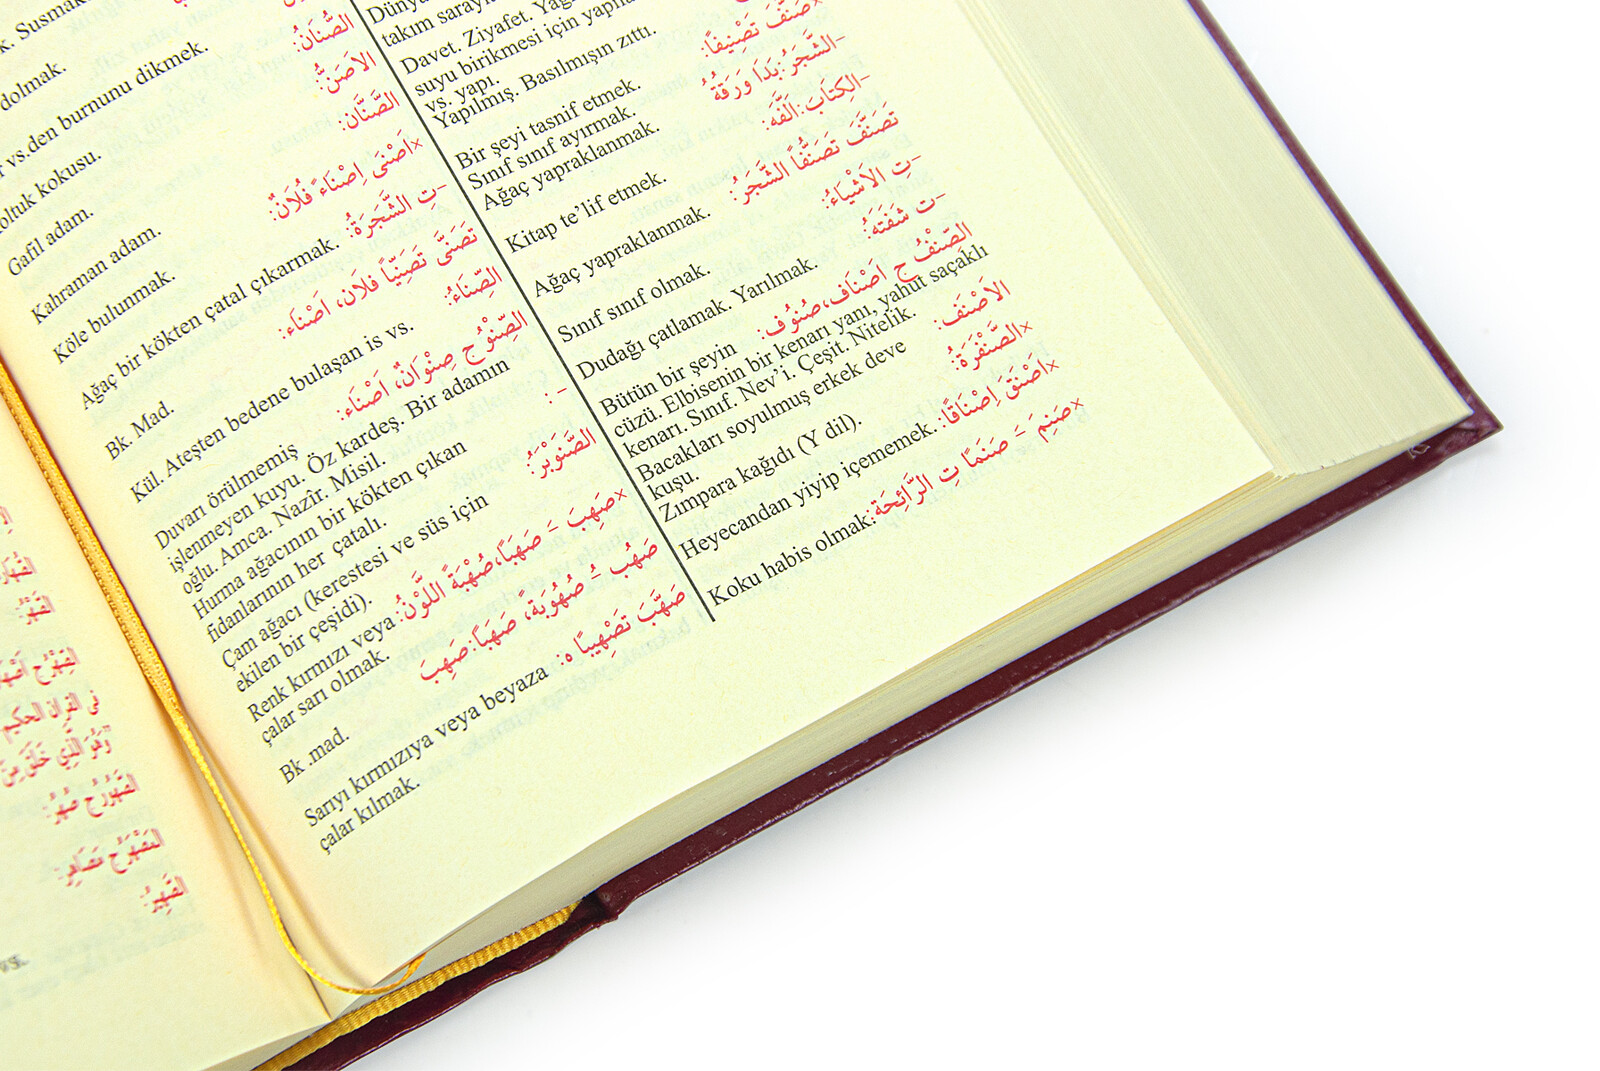 Susmak
الصُّنَانُ:
dolmak.
الاَصَنُّ:
vs.den burnunu dikmek.
الصَّنَّان:
koltuk kokusu.
×اَصْنَى اِصْنَاءً فُلَانٌ:
Gafil adam.
–تِ الشَّجَرَةُ:
Kahraman adam.
تَصَنَّى تَصَنِّيًا فلَان، اَصْنَاء:
Köle bulunmak.
الصِّنَاءُ:
Ağaç bir kökten çatal çıkarmak.
Bk. Mad.
الصِّنْوُ ج صِنْوَانٌ، اَصْنَاء:
Kül. Ateşten bedene bulaşan is vs.
Duvarı örülmemiş
işlenmeyen kuyu. Öz kardeş. Bir adamın
oğlu. Amca. Nazîr. Misil.
– :
Hurma ağacının bir kökten çıkan
fidanlarının her çatalı.
الصَّنَوْبَرُ:
Çam ağacı (kerestesi ve süs için
ekilen bir çeşidi).
×صَهِبَ – صَهَبًا،صُهْبَةً اللَّوْنُ:
Renk kırmızı veya
çalar sarı olmak.
صَهُب – صُهُوبَةً، صَهَبًا:صَهِبَ
Bk .mad.
صَهَّبَ تَصْهِيبًا ه:
Sarıyı kırmızıya veya beyaza
çalar kılmak.
Dünya
takım saray
Davet. Ziyafet.
suyu birikmesi için
vs. yapı.
Yapılmış. Basılmışın zıttı.
×صَنَّفَ تَصْنِيفًا:
Bir şeyi tasnif etmek.
Sınıf sınıf ayırmak.
–الشَّجَرُ:بَدَا وَرَقُهُ
Ağaç yapraklanmak.
–الكِتَابَ:اَلَّفَه:
Kitap te’lif etmek.
تَصَنَّفَ تَصَنُّفًا الشَّجَرُ:
Ağaç yapraklanmak.
–تِ الاَشْيَاءُ:
Sınıf sınıf olmak.
–ت شَفَتَهُ:
Dudağı çatlamak. Yarılmak.
الصِّنْفُ ج اَصْنَاف،صُنُوُف:
Bütün bir şeyin
cüzü. Elbisenin bir kenarı yanı, yahut saçaklı
kenarı. Sınıf. Nev’i. Çeşit. Nitelik.
الاَصْنَف:
Bacakları soyulmuş erkek deve
kuşu.
×الصَّنْفَرَةُ:
Zımpara kağıdı (Y dil).
×اَصْنَقَ اِصْنَاقًا:
Heyecandan yiyip içememek.
×صَنِمَ – صَنَمًا تِ الرَّائِحَة:
Koku habis olmak:
فى القرآن الحكيم